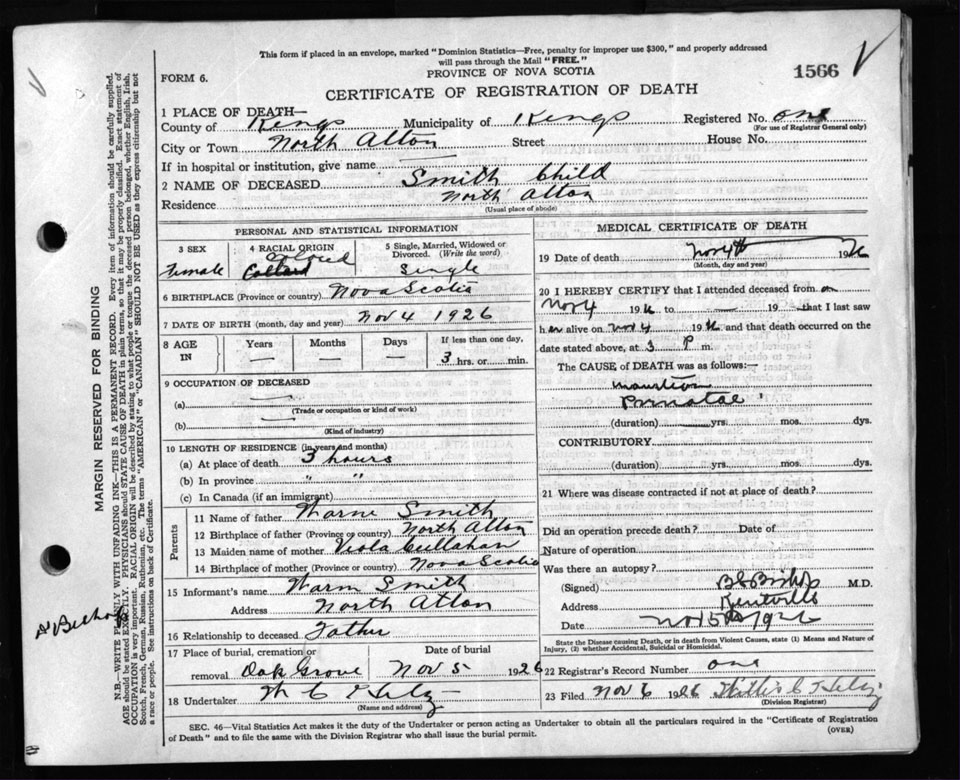 This form if placed in an envelope, marked "Dominion Statistics—Free, penalty for improper use $300," and properly addressed
will pass through the Mail "FREE."
FORM 6.
PROVINCE OF NOVA SCOTIA
1566
CERTIFICATE OF REGISTRATION OF DEATH
1 PLACE OF DEATH—
County of Kings Municipality of Kings Registered No. one
(For use of Registrar General only)
City or Town North Alton Street House No.
If in hospital or institution, give name
2 NAME OF DECEASED Smith Child
Residence North Alton
(Usual place of abode)
PERSONAL AND STATISTICAL INFORMATION
3 SEX 4 RACIAL ORIGIN 5 Single, Married, Widowed or
Divorced. (Write the word)
Colored
Female Single
6 BIRTHPLACE (Province or country) Nova Scotia
7 DATE OF BIRTH (month, day and year) Nov 4 1926
8 AGE IN Years Months Days If less than one day,
3 hrs. or min.
9 OCCUPATION OF DECEASED
(a)
(Trade or occupation or kind of work)
(b)
(Kind of industry)
10 LENGTH OF RESIDENCE (in years and months)
(a) At place of death 3 hours
(b) In province " "
(c) In Canada (if an immigrant)
Parents
11 Name of father Smith
12 Birthplace of father (Province or country) North Alton
13 Maiden name of mother Viola Cullahan
14 Birthplace of mother (Province or country) Nova Scotia
15 Informant's name Smith
Address North Alton
16 Relationship to deceased Father
17 Place of burial, cremation or Date of burial
removal Oak Grove Nov 5 1926
18 Undertaker
(Name and address)
MEDICAL CERTIFICATE OF DEATH
19 Date of death Nov 4th 1926
(Month, day and year)
20 I HEREBY CERTIFY that I attended deceased from on
Nov 4 1926 to 192 that I last saw
h er alive on Nov 4 1926 and that death occurred on
the date stated above, at 3 P m.
The CAUSE of DEATH was as follows:—
(duration) yrs. mos. dys.
CONTRIBUTORY
(duration) yrs. mos. dys.
21 Where was disease contracted if not at place of death?
Did an operation precede death? Date of
Nature of operation
Was there an autopsy?
(Signed) Bishop M.D.
Address Kentville
Date Nov 5th 1926
State the Disease causing Death, or in death from Violent Causes, state (1) Means and Nature of
Injury, (2) whether Accidental, Suicidal or Homicidal.
22 Registrar's Record Number one
23 Filed Nov 6 1926 Willis C
(Division Registrar)
SEC. 46—Vital Statistics Act makes it the duty of the Undertaker or person acting as Undertaker to obtain all the particulars required in the "Certificate of Registration
of Death" and to file the same with the Division Registrar who shall issue the burial permit.
(OVER)
MARGIN RESERVED FOR BINDING
N.B.—WRITE PLAINLY WITH UNFADING INK—THIS IS A PERMANENT RECORD. Every item of information should be carefully supplied.
AGE should be stated EXACTLY. PHYSICIANS should STATE CAUSE OF DEATH in plain terms, so that it may be properly classified. Exact statement of
OCCUPATION is very important. RACIAL ORIGIN will be described by stating to what people or tongue the deceased person belonged, whether English, Irish,
Scotch, French, German, Russian, Ruthenian, etc. The terms "AMERICAN" or "CANADIAN" SHOULD NOT BE USED as they express citizenship but not
a race or people. See instructions on back of Certificate.